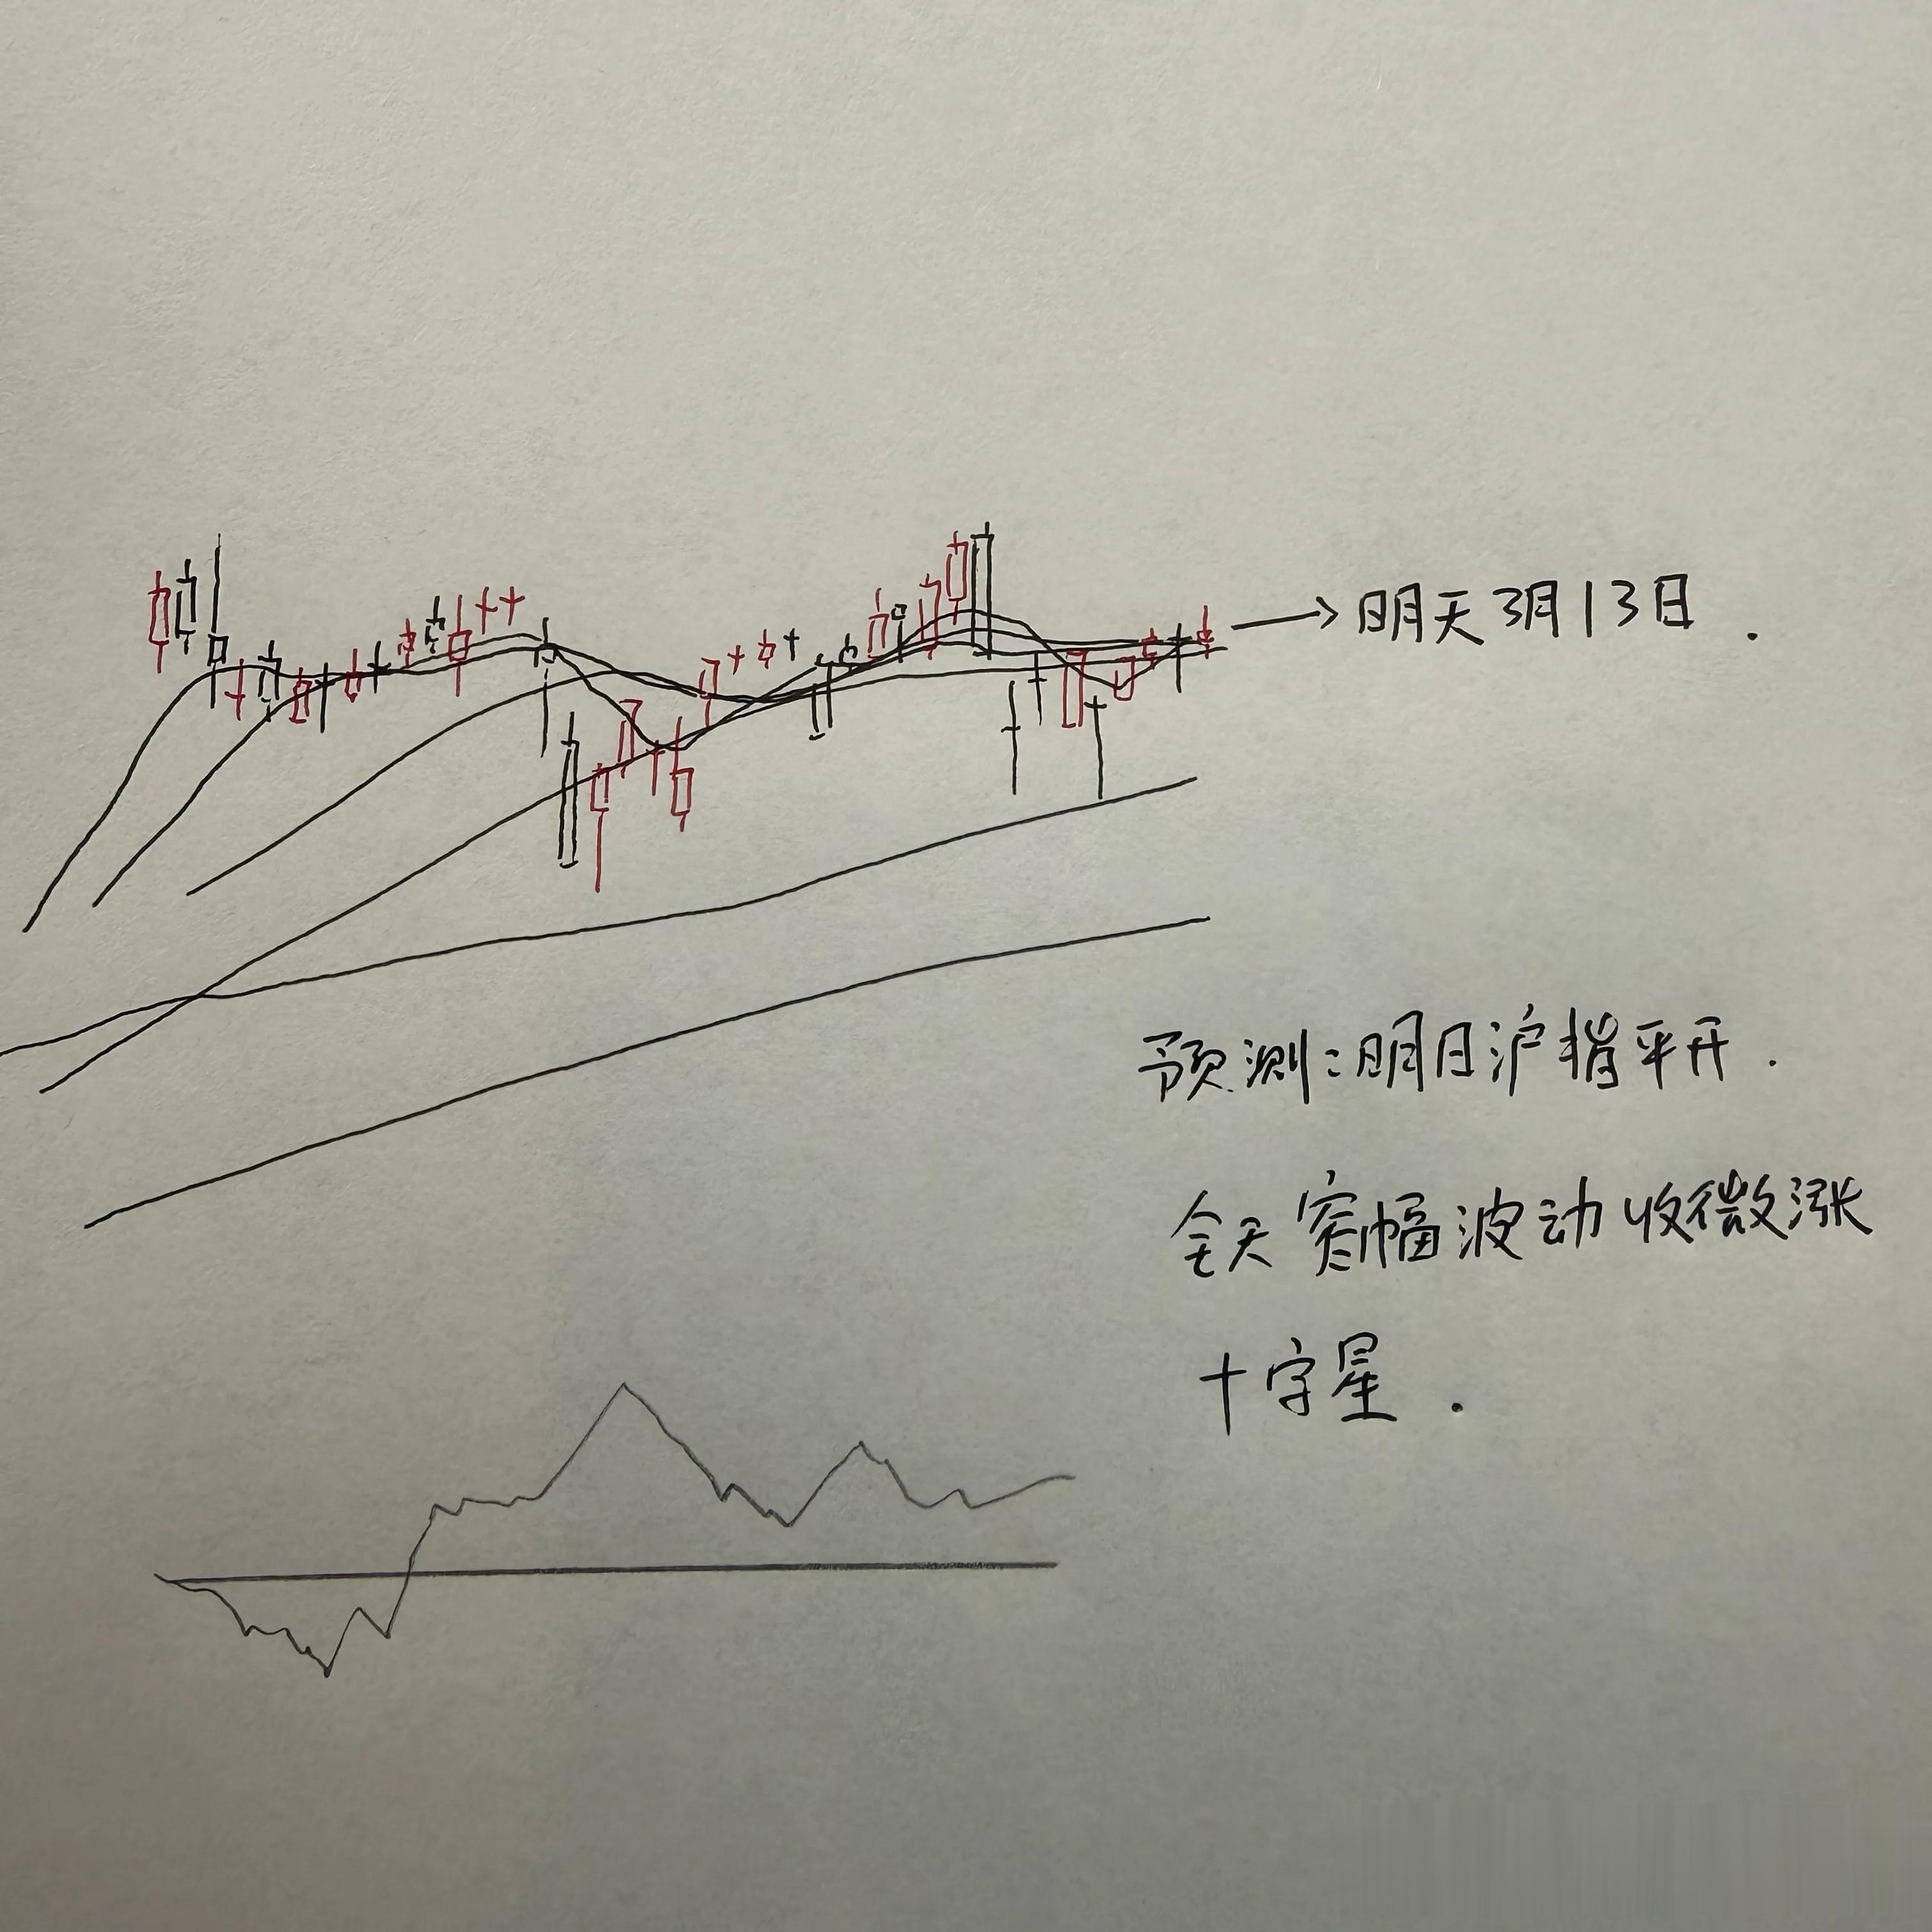 明天3月13日.
预测:明日沪指平开.
全天宽幅波动收微涨
十字星.